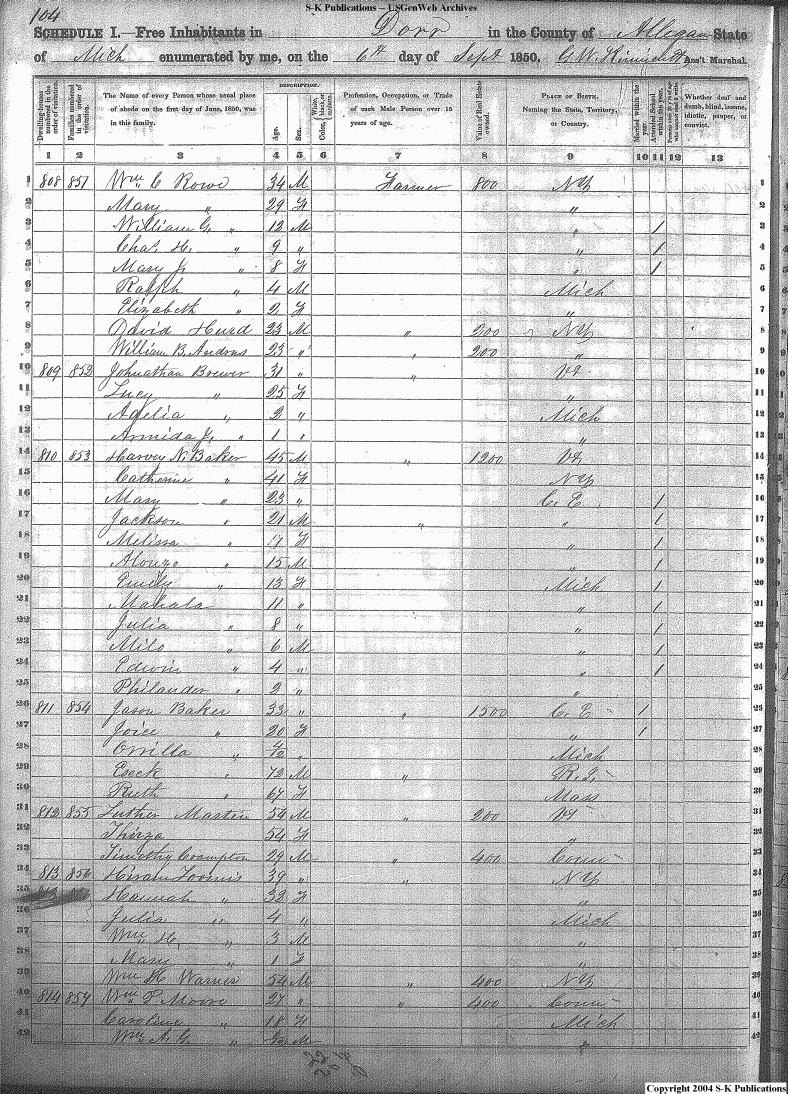 S-K Publications – USGenWeb Archives
104
SCHEDULE I.—Free Inhabitants in Dorr in the County of Allegan State
of Mich enumerated by me, on the 6th day of Sept 1850. Ass't Marshal.
DESCRIPTION.
Dwelling-houses numbered in the order of visitation.
Families numbered in the order of visitation.
The Name of every Person whose usual place of abode on the first day of June, 1850, was in this family.
Age.
Sex.
Color, White, black, or mulatto.
Profession, Occupation, or Trade of each Male Person over 15 years of age.
Value of Real Estate owned.
PLACE OF BIRTH. Naming the State, Territory, or Country.
Married within the year.
Attended School within the year.
Persons over 20 y'rs of age who cannot read & write.
Whether deaf and dumb, blind, insane, idiotic, pauper, or convict.
1 2 3 4 5 6 7 8 9 10 11 12 13
1 808 851 Wm C Rowe 34 M Farmer 800 NY 1
2 Mary " 29 F " 2
3 William G. " 12 M " / 3
4 Chas. H. " 9 " " / 4
5 Mary J. " 8 F " / 5
6 Ralph " 4 M Mich 6
7 Elizabeth " 2 F " 7
8 David Hurd 23 M " 200 NY 8
9 William B. Andrus 23 " " 200 " 9
10 809 852 Johnathan Brewer 31 " " Vt 10
11 Lucy " 25 F " 11
12 Adelia " 2 " Mich 12
13 Armida J. " 1 " " 13
14 810 853 Harvey N. Baker 45 M " 1200 Vt 14
15 Catherine " 41 F NY 15
16 Mary " 23 " C. E. / 16
17 Jackson " 21 M " " / 17
18 Melissa " 17 F " / 18
19 Alonzo " 15 M " / 19
20 Emily " 13 F Mich / 20
21 Mahala 11 " " / 21
22 Julia " 8 " " / 22
23 Milo " 6 M " / 23
24 Edwin " 4 " " / 24
25 Philander " 2 " " 25
26 811 854 Jason Baker 33 " " 1500 C. E. 1 26
27 Joice " 20 F " 1 27
28 Orrilla " 4/12 " Mich 28
29 Eseck " 72 M " R. I. 29
30 Ruth " 67 F Mass 30
31 812 855 Luther Martin 54 M " 200 Vt 31
32 Thirza 54 F " 32
33 Timothy Crampton 29 M " 400 Conn 33
34 813 856 Hiram Loomis 39 " " NY 34
35 Hannah " 32 F " 35
36 Julia " 4 " Mich 36
37 Wm H. " 3 M " 37
38 Mary " 1 F " 38
39 Wm H Warner 54 M " 400 NY 39
40 814 857 Wm P Moore 27 " " 400 Conn 40
41 Caroline " 18 F Mich 41
42 Wm A. G. " M " 42
Copyright 2004 S-K Publications